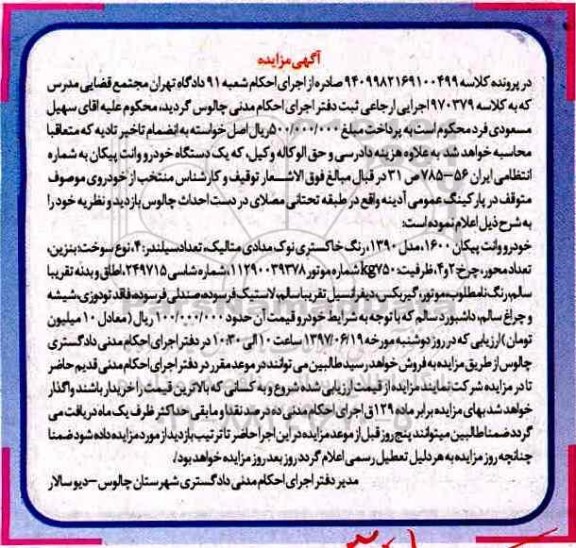 آگهی مزایده
در پرونده کلاسه ۹۴۰۹۹۸۲۱۶۹۱۰۰۴۹۹ صادره از اجرای احکام شعبه ۹۱ دادگاه تهران مجتمع قضایی مدرس
که به کلاسه ۹۷۰۳۷۹ اجرایی ارجاعی ثبت دفتر اجرای احکام مدنی چالوس گردید، محکوم علیه اقای سهیل
مسعودی فرد محکوم است به پرداخت مبلغ ۵۰۰/۰۰۰/۰۰۰ ریال اصل خواسته به انضمام تاخیر تادیه که متعاقبا
محاسبه خواهد شد به علاوه هزینه دادرسی و حق الوکاله وکیل، که یک دستگاه خودرو وانت پیکان به شماره
انتظامی ایران ۵۶-۷۸۵ ص ۳۱ در قبال مبالغ فوق الاشعار توقیف و کارشناس منتخب از خودروی موصوف
متوقف در پارکینگ عمومی آدینه واقع در طبقه تحتانی مصلای در دست احداث چالوس بازدید و نظریه خود را
به شرح ذیل اعلام نموده است:
خودرو وانت پیکان ۱۶۰۰، مدل ۱۳۹۰، رنگ خاکستری نوک مدادی متالیک، تعداد سیلندر: ۴، نوع سوخت: بنزین،
تعداد محور، چرخ ۲و۴، ظرفیت: ۷۵۰kg شماره موتور ۱۱۲۹۰۰۳۹۳۷۸، شماره شاسی ۲۴۹۷۱۵، اطاق و بدنه تقریبا
سالم، رنگ نامطلوب، موتور، گیربکس، دیفرانسیل تقریبا سالم، لاستیک فرسوده، صندلی فرسوده، فاقد تودوزی، شیشه
و چراغ سالم، داشبورد سالم که با توجه به شرایط خودرو قیمت آن حدود ۱۰۰/۰۰۰/۰۰۰ ریال (معادل ۱۰ میلیون
تومان) ارزیابی که در روز دوشنبه مورخه ۱۳۹۷/۰۶/۱۹ ساعت ۱۰ الی ۱۰:۳۰ در دفتر اجرای احکام مدنی دادگستری
چالوس از طریق مزایده به فروش خواهد رسید طالبین می توانند در موعد مقرر در دفتر اجرای احکام مدنی قدیم حاضر
تا در مزایده شرکت نمایند مزایده از قیمت ارزیابی شده شروع و به کسانی که بالاترین قیمت را خریدار باشند واگذار
خواهد شد بهای مزایده برابر ماده ۱۲۹ ق اجرای احکام مدنی ده درصد نقدا و مابقی حداکثر ظرف یک ماه دریافت می
گردد ضمنا طالبین میتوانند پنج روز قبل از موعد مزایده در این اجرا حاضر تا ترتیب بازدید از مورد مزایده داده شود ضمنا
چنانچه روز مزایده به هر دلیل تعطیل رسمی اعلام گردد روز بعد روز مزایده خواهد بود/.
مدیر دفتر اجرای احکام مدنی دادگستری شهرستان چالوس - دیو سالار